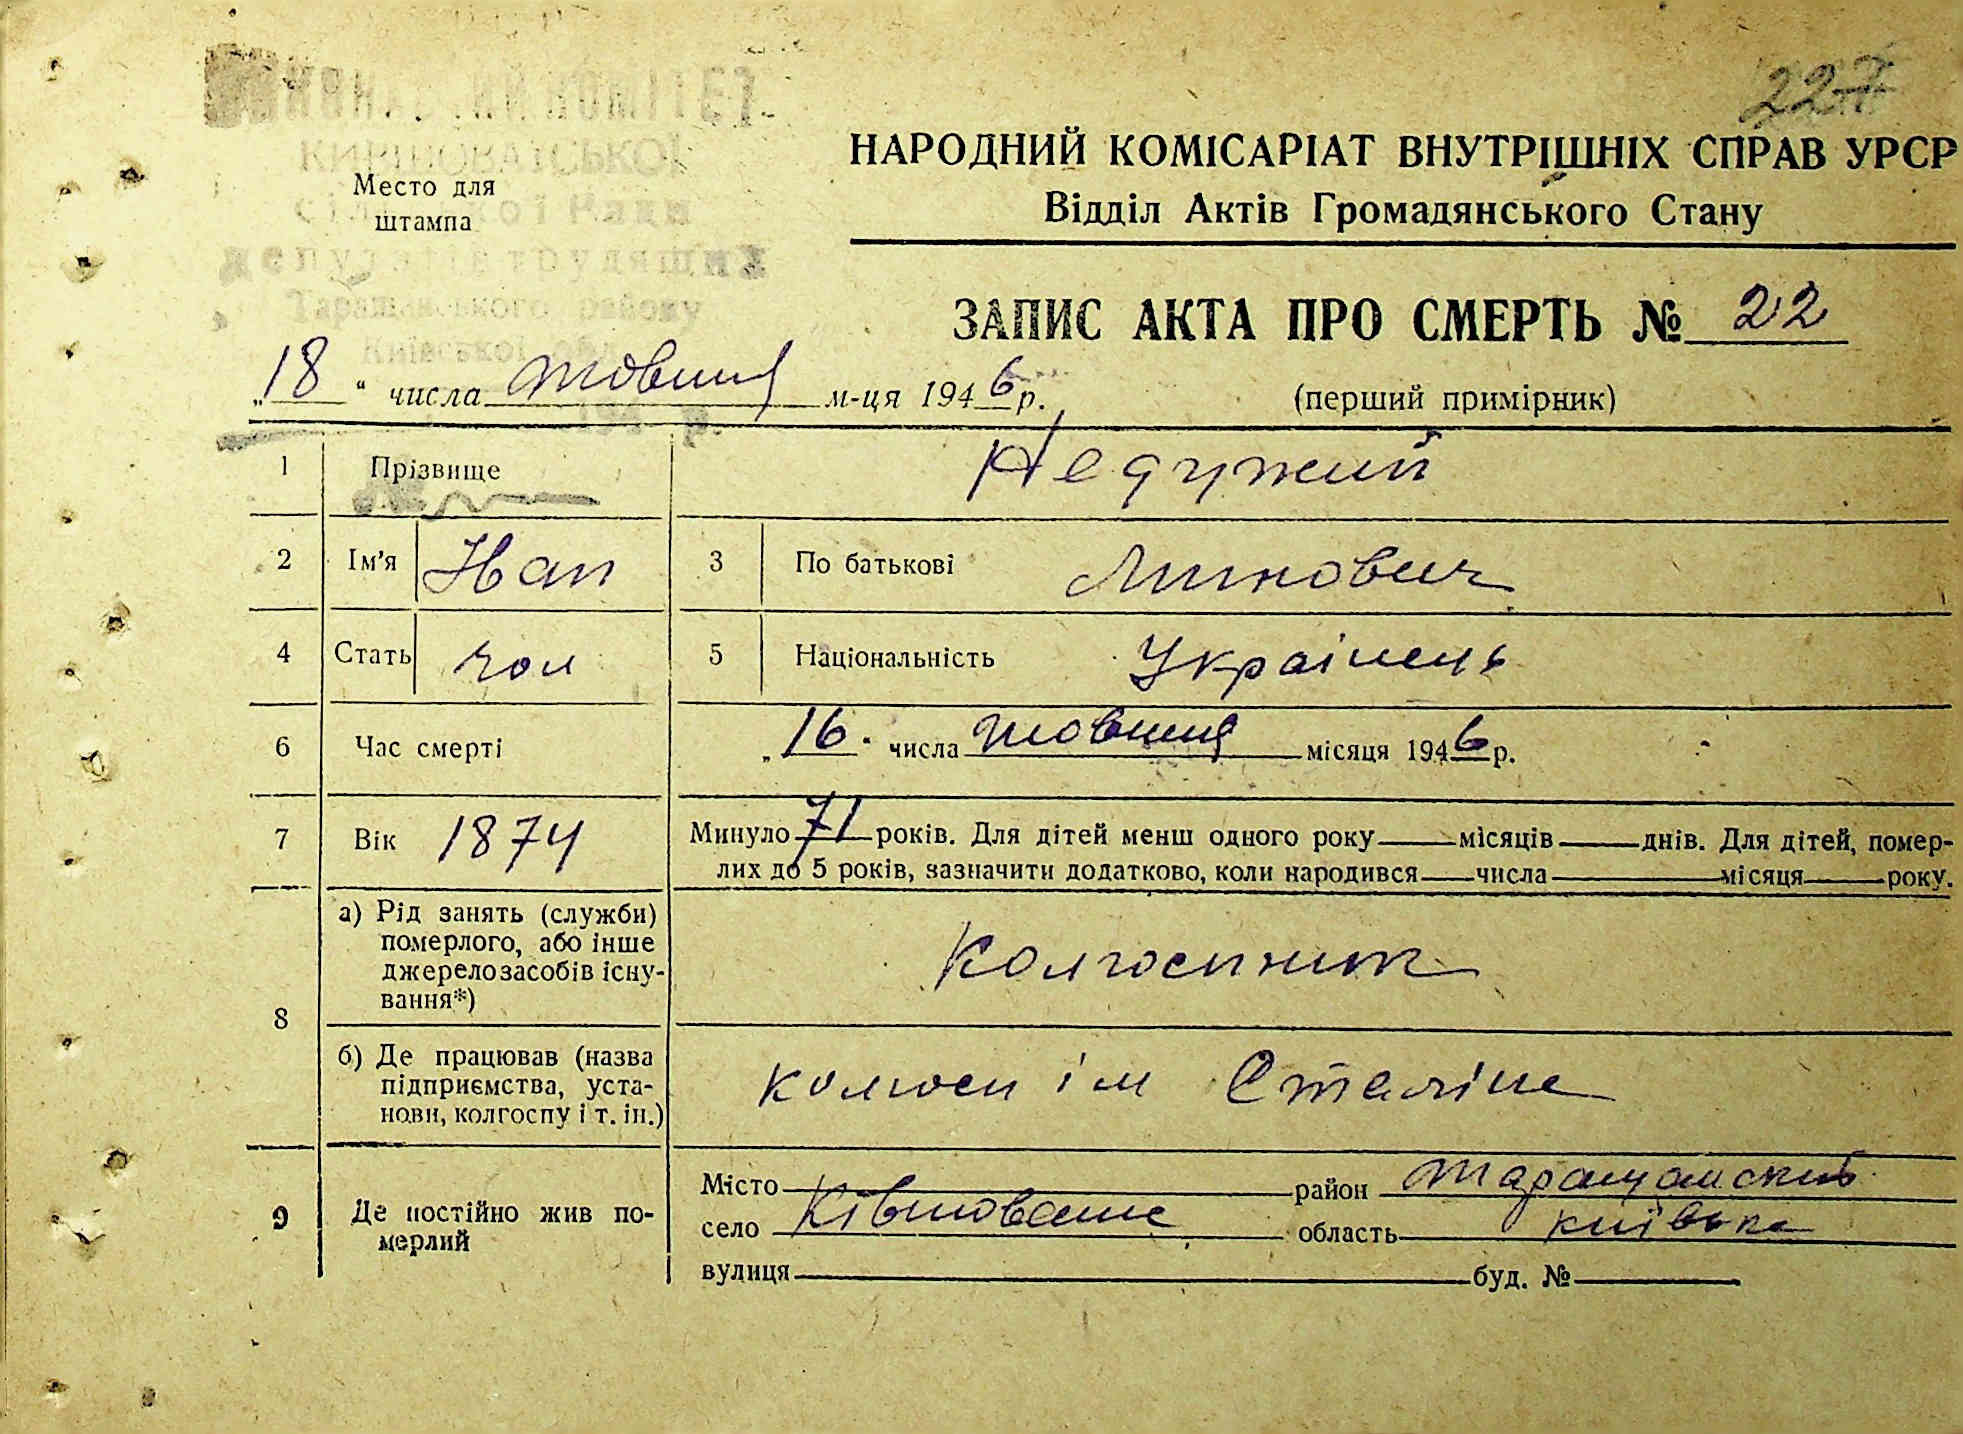 227
НАРОДНИЙ КОМІСАРІАТ ВНУТРІШНІХ СПРАВ УРСР
Відділ Актів Громадянського Стану
КОМІТЕТ
Место для
штампа
Ради
депутатів трудящих
Таращанського району
Київської обл
ЗАПИС АКТА ПРО СМЕРТЬ № 22
„18“ числа жовтня м-ця 1946 р.
(перший примірник)
1 Прізвище Недужий
2 Ім'я Іван 3 По батькові
4 Стать чол 5 Національність Українець
6 Час смерті „16. числа жовтня місяця 1946 р.
7 Вік 1874 Минуло 71 років. Для дітей менш одного року місяців днів. Для дітей, помер-
лих до 5 років, зазначити додатково, коли народився числа місяця року.
8 а) Рід занять (служби)
померлого, або інше
джерело засобів існу-
вання*)
Колгоспник
б) Де працював (назва
підприємства, уста-
нови, колгоспу і т. ін.)
колгосп ім Сталіна
9 Де постійно жив по-
мерлий
Місто район Таращанский
село область київська
вулиця буд. №